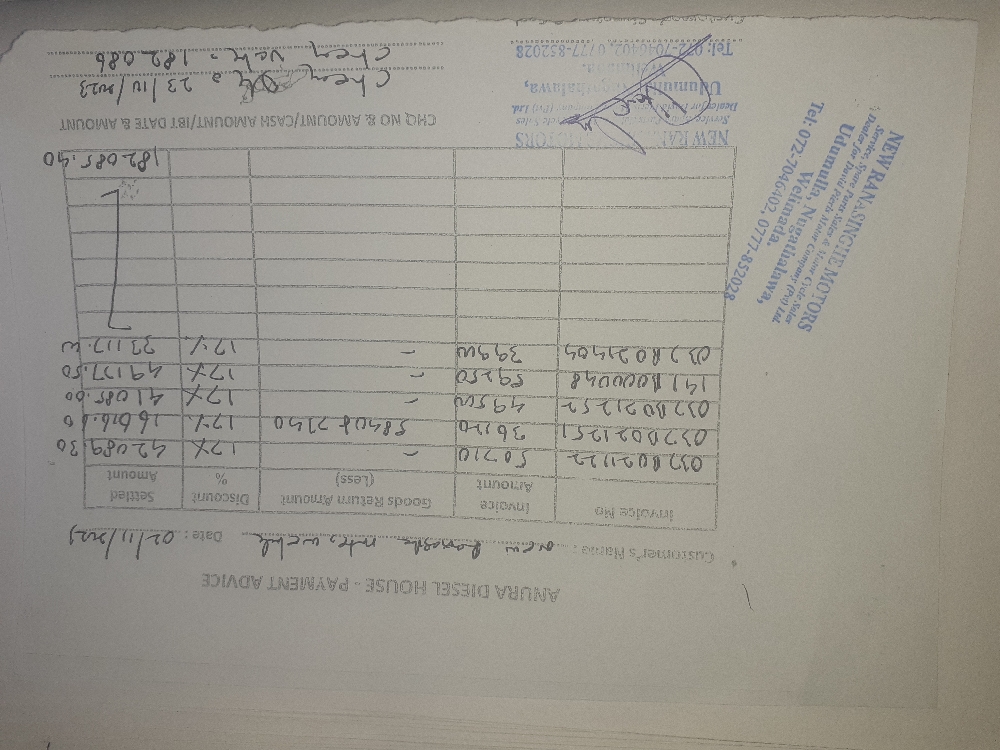 ANURA DIESEL HOUSE - PAYMENT ADVICE
Customer's Name: New Date: 02/11/2023
Invoice No Invoice Amount Goods Return Amount (Less) Discount % Settled Amount
037B021122 50710 - 17% 42089.30
037B021251 36120 17% 16616.60
037B021252 49500 - 17% 41085.00
141B000048 59250 - 17% 49177.50
037B021404 39900 - 17% 33117.00
182085.40
CHQ NO & AMOUNT/CASH AMOUNT/IBT DATE & AMOUNT
Cheq = 23/11/2023
Cheq Valu = 182086
NEW RANASINGHE MOTORS
Service, Spare Parts Sales & Motor Cycle Sales
Dealer for David Pieris Motor Company (Pvt) Ltd.
Udumulla, Nugathalawa,
Welimada.
Tel: 072-7046402, 0777-852028
NEW RANASINGHE MOTORS
Service, Spare Parts Sales & Motor Cycle Sales
Dealer for David Pieris Motor Company (Pvt) Ltd.
Udumulla, Nugathalawa,
Welimada.
Tel: 072-7046402, 0777-852028